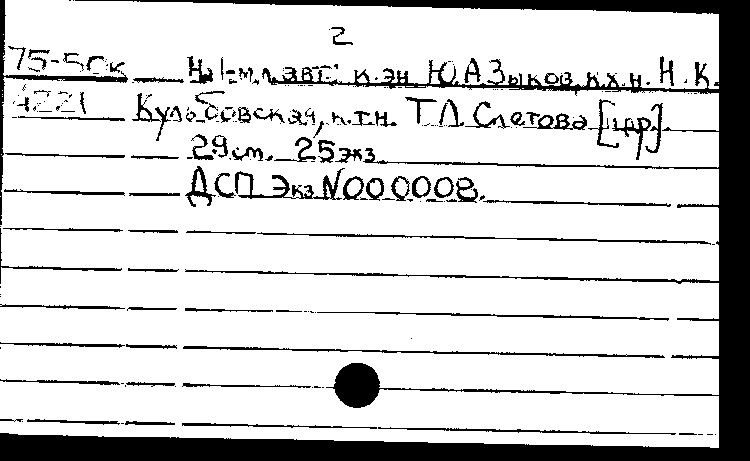 2
75-5ск На 1-м л. авт.: к. эн Ю.А.Зыков, к.х.н. Н.К.
4221 Кульбовская, к.т.н. Т Л Слетова [и др.].
29 см. 25 экз.
ДСП Экз N000008.